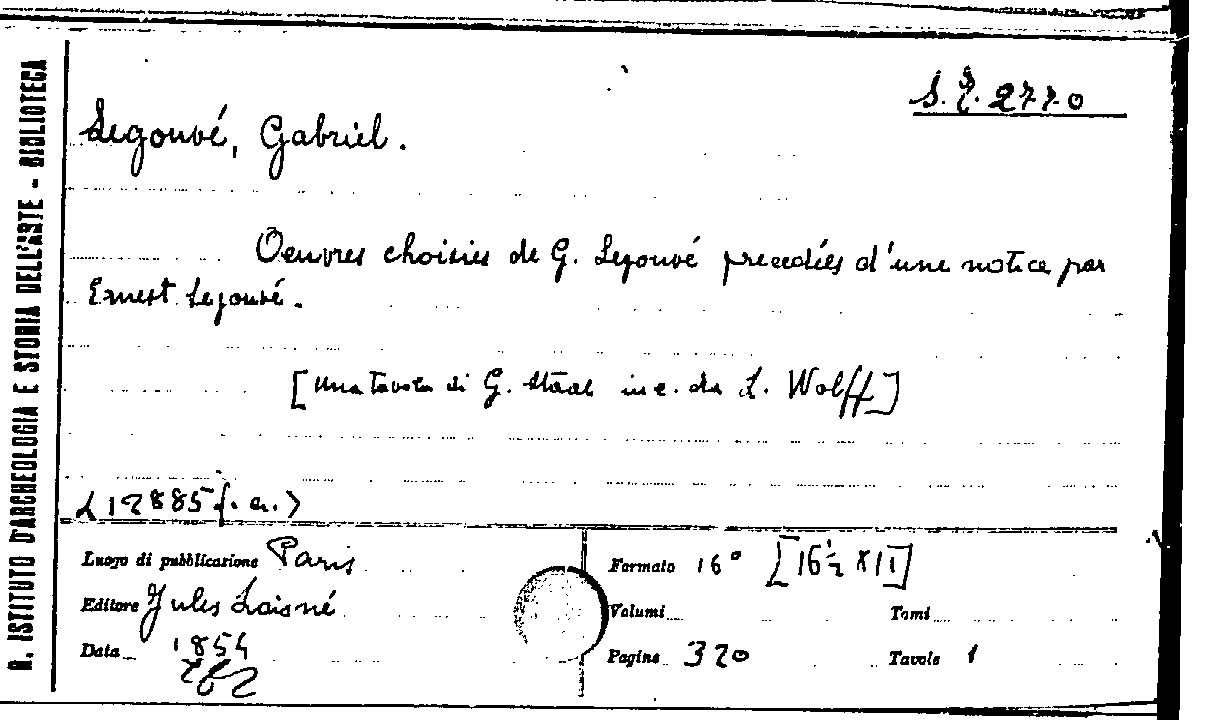 R. ISTITUTO D'ARCHEOLOGIA E STORIA DELL'ARTE - BIBLIOTECA
Legouvé, Gabriel.
Oeuvres choisies de G. Legouvé precedées d'une notice par
Ernest Legouvé.
[Una tavola di G. Staal inc. da L. Wolff]
<12885 f. a.>
Luogo di pubblicazione Paris
Editore Jules Laisné
Data 1854
Formato 16° [16½ x 11]
Volumi Tomi
Pagine 320 Tavole 1